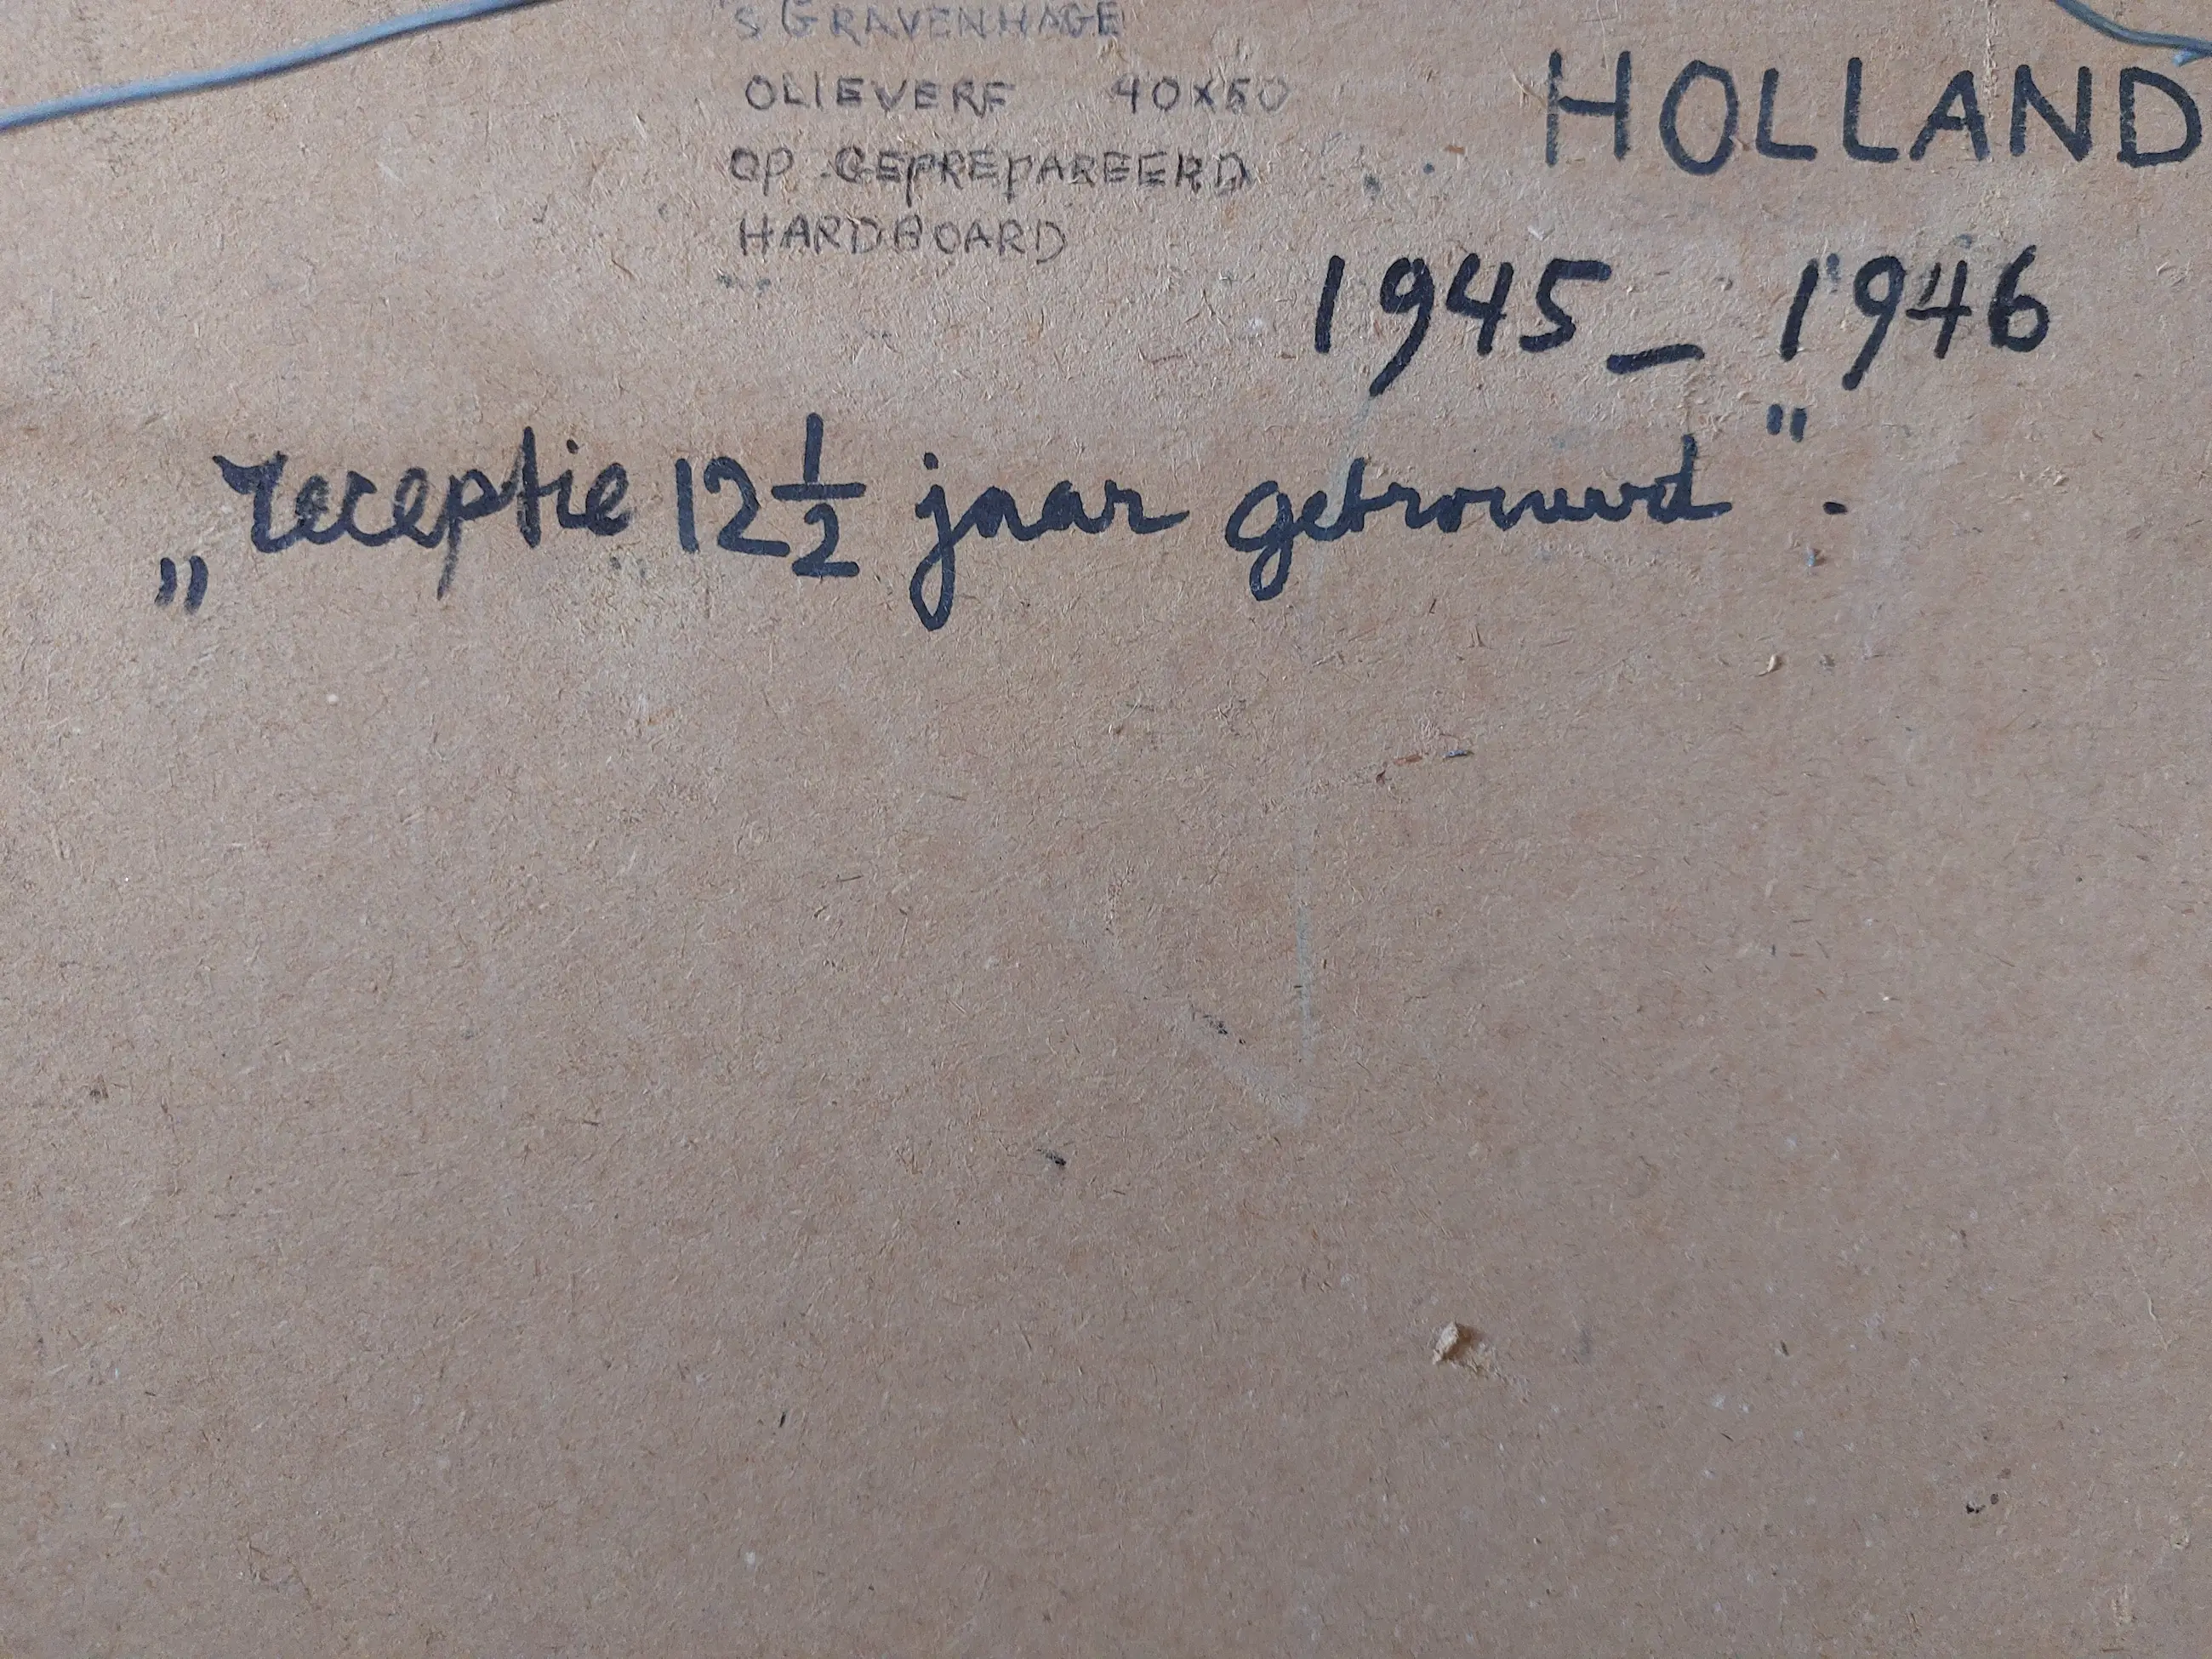 's GRAVENHAGE
OLIEVERF 40X50
OP GEPREPAREERD
HARDBOARD
HOLLAND
1945_1946
„receptie 12 1/2 jaar getrouwd".